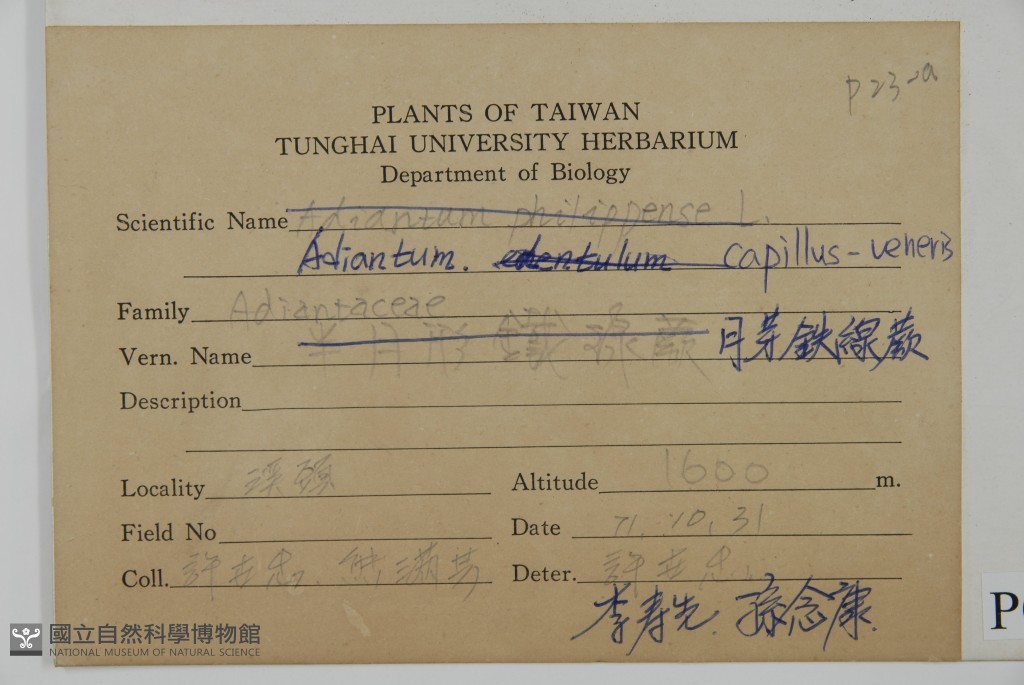 P23-a
PLANTS OF TAIWAN
TUNGHAI UNIVERSITY HERBARIUM
Department of Biology
Scientific Name Adiantum philippense L.
Adiantum. edentulum capillus-veneris
Family Adiantaceae
Vern. Name 半月形鐵線蕨 月芽鉄線蕨
Description
Locality 溪頭 Altitude 1600 m.
Field No Date 71.10.31
Coll. 許世忠 熊滿芳 Deter. 許世忠
李寿先. 孫念康.
國立自然科學博物館
NATIONAL MUSEUM OF NATURAL SCIENCE